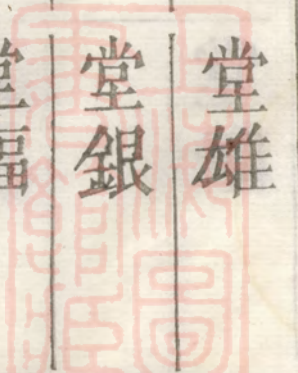 堂雄
堂銀
堂福